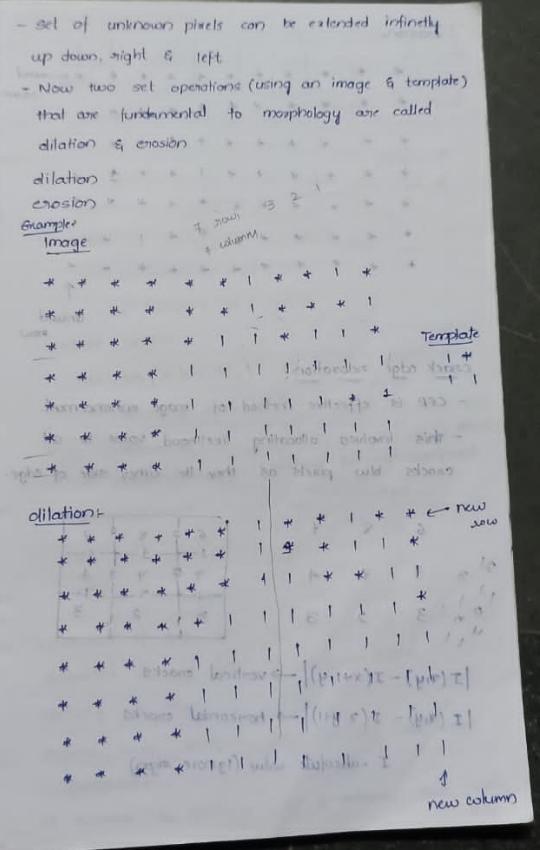 - set of unknown pixels can be extended infinetly
up down, right & left
- Now two set operations (using an image & template)
that are fundamental to morphology are called
dilation & erosion
dilation
erosion
Example:
Image
7 rows
columns
3 2 1
* * * * * * 1 * * 1 *
* * * * * * 1 * * * 1
* * * * * 1 1 * 1 1 *
Template
* * * * 1 1 1 1 1 1 1
1 *
1 1
* * * * 1 1 1 1 1 * 1
* * * * 1 1 1 1 1 1 1
* * * * 1 1 1 1 1 1 1
dilation:-
* * * * * * 1 * * 1 * * ← new row
* * * * * * 1 * * 1 1 *
* * * * * * 1 1 * * 1 1
* * * * * 1 1 1 1 1 1 *
* * * * 1 1 1 1 1 1 1 1
* * * * 1 1 1 1 1 1 1 1
* * * * 1 1 1 1 1 1 1 1
* * * * 1 1 1 1 1 1 1 1
↑
new column